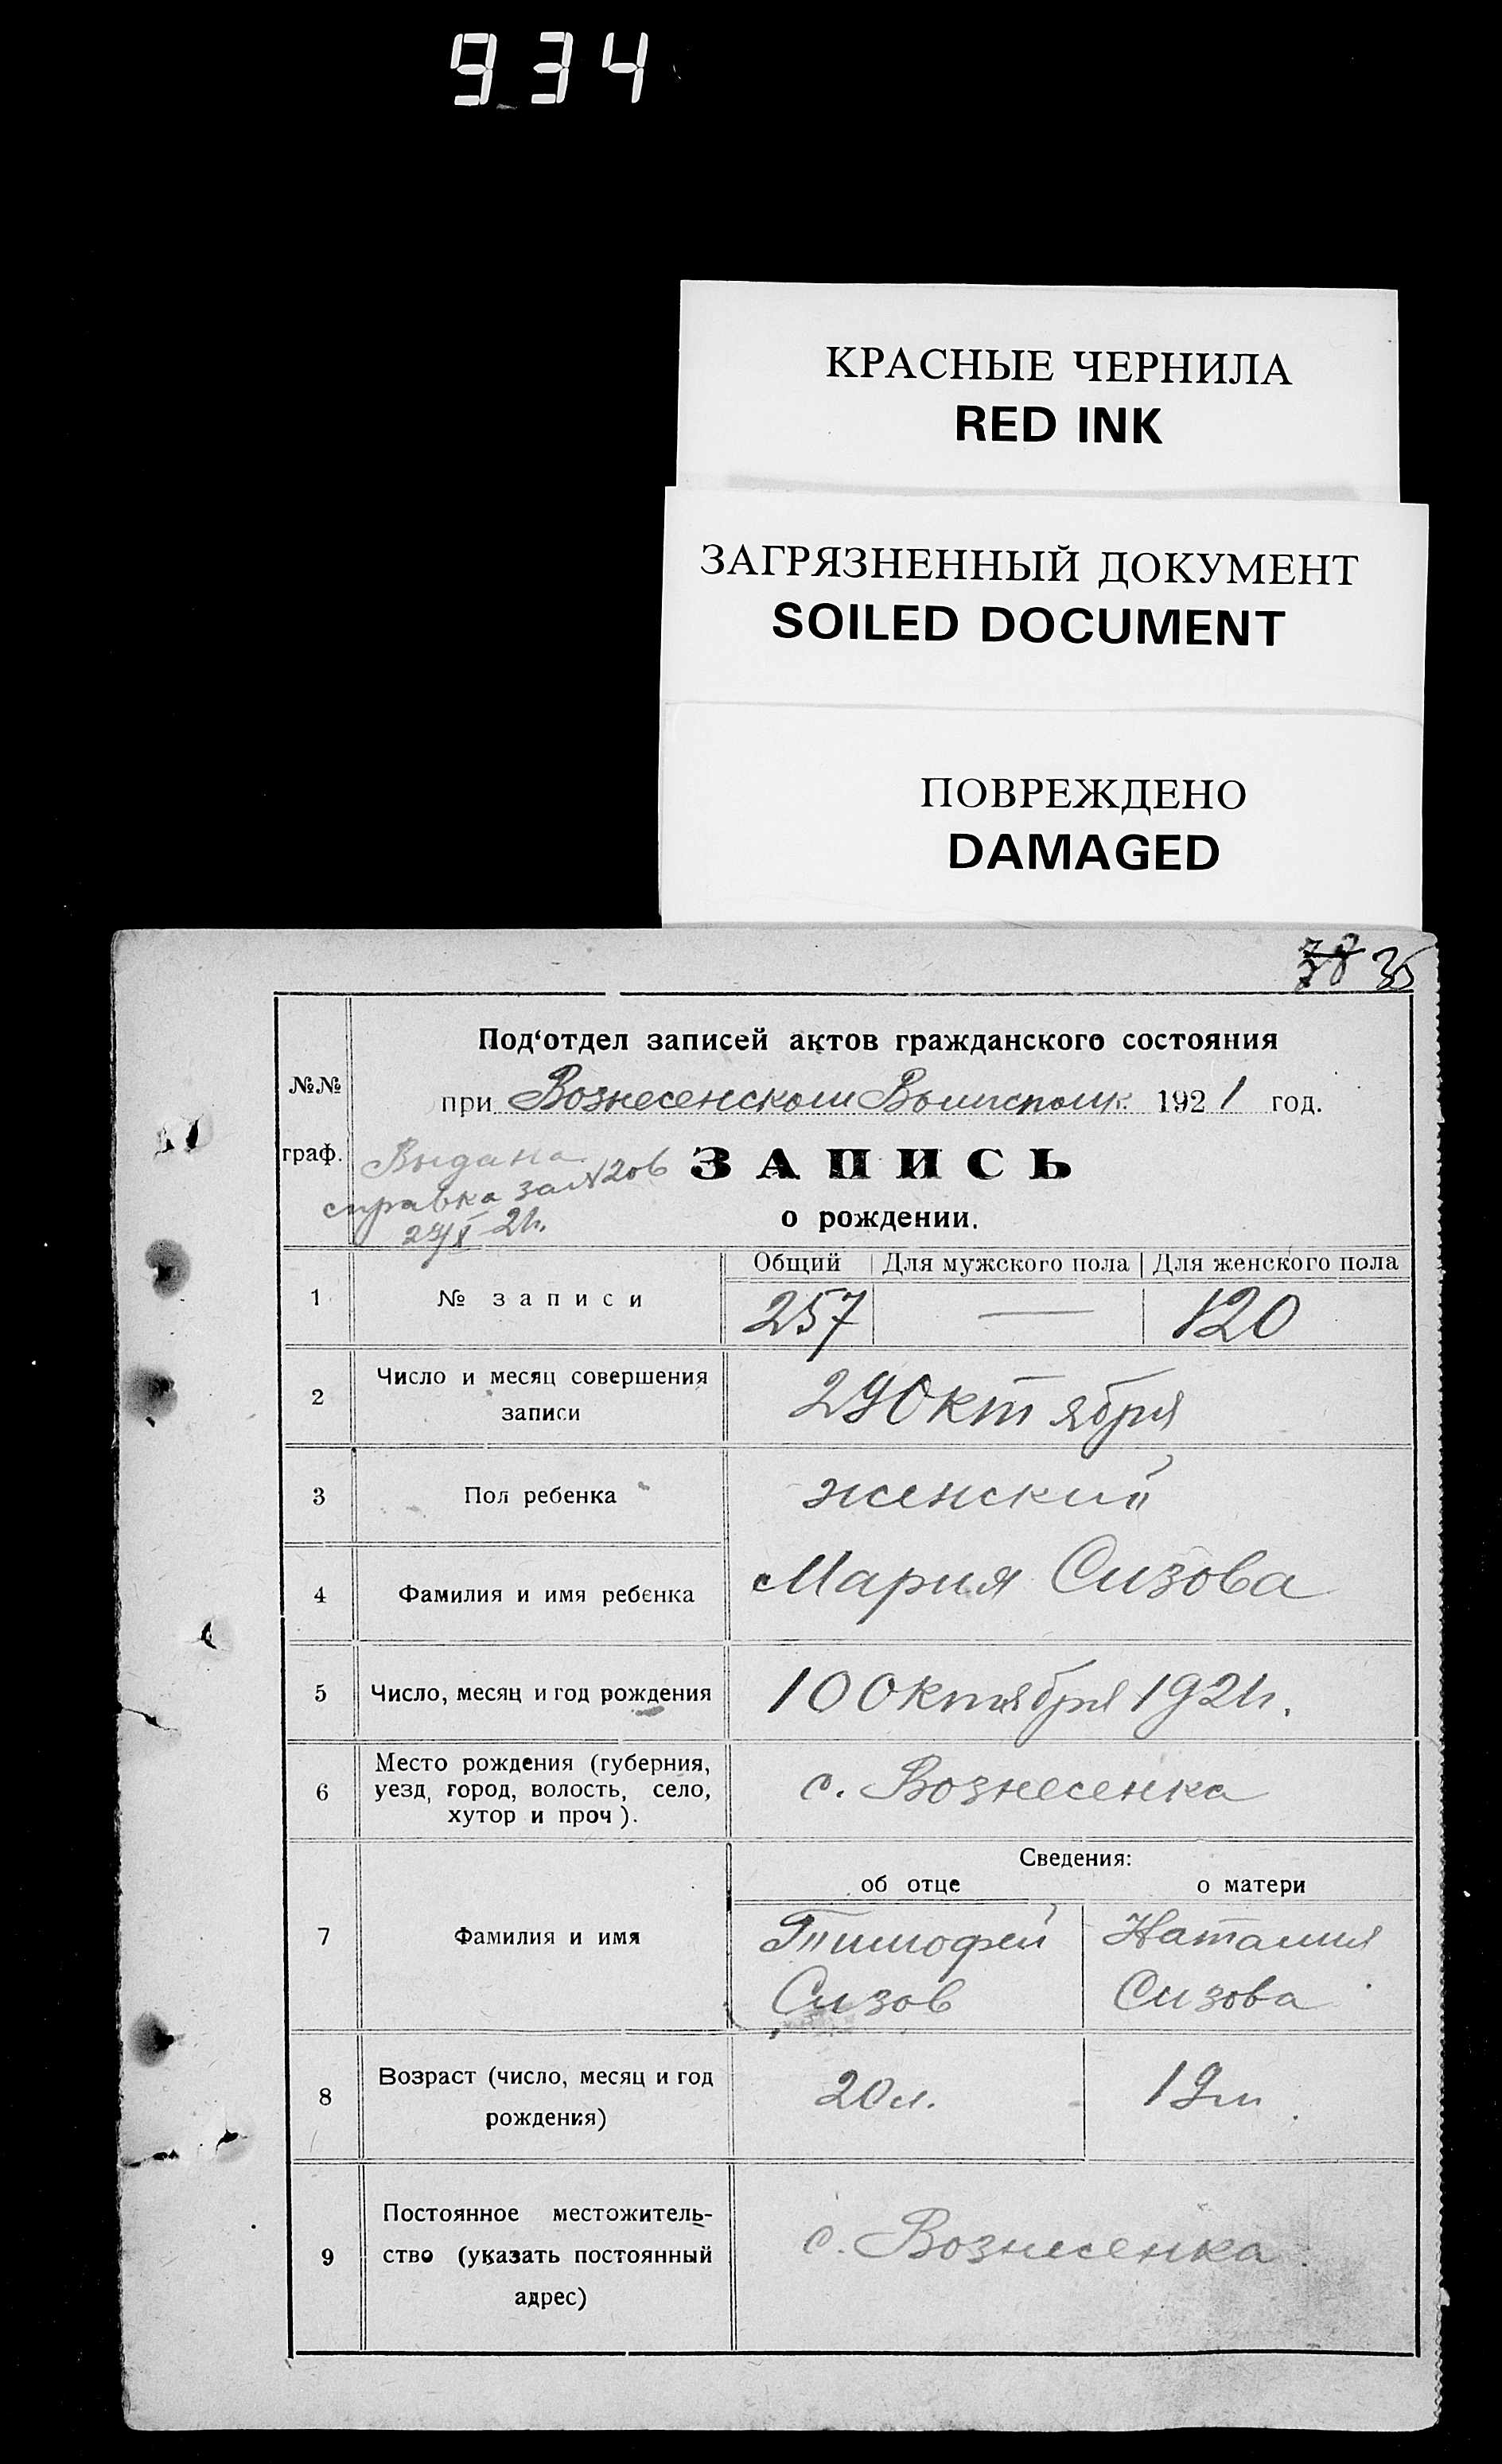 934
КРАСНЫЕ ЧЕРНИЛА
RED INK
ЗАГРЯЗНЕННЫЙ ДОКУМЕНТ
SOILED DOCUMENT
ПОВРЕЖДЕНО
DAMAGED
38 35
Под‘отдел записей актов гражданского состояния
№№
при Вознесенском Волисполк. 1921 год.
граф.
Выдана
справка за №206
ЗАПИСЬ
о рождении.
Общий Для мужского пола Для женского пола
1 № записи 257 — 120
2 Число и месяц совершения
записи
29 Октября
3 Пол ребенка женский
4 Фамилия и имя ребенка Мария Сизова
5 Число, месяц и год рождения 10 Октября 1921г.
6 Место рождения (губерния,
уезд, город, волость, село,
хутор и проч).
с. Вознесенка
Сведения:
об отце о матери
7 Фамилия и имя
Тимофей Наталия
Сизов Сизова
8 Возраст (число, месяц и год
рождения)
20 л. 19 л.
9 Постоянное местожитель-
ство (указать постоянный
адрес)
с. Вознесенка